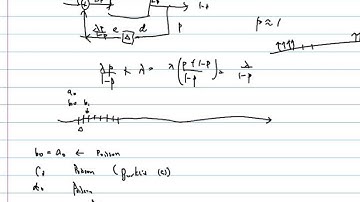 1-p
λp/1-p e Δ d p p≈1
λp/1-p + λ = λ(p+1-p/1-p) = λ/1-p
a₀
b₀ b₁
Δ
b₀ = a₀ ← Poisson
C₁ Poisson
d₀ Poisson